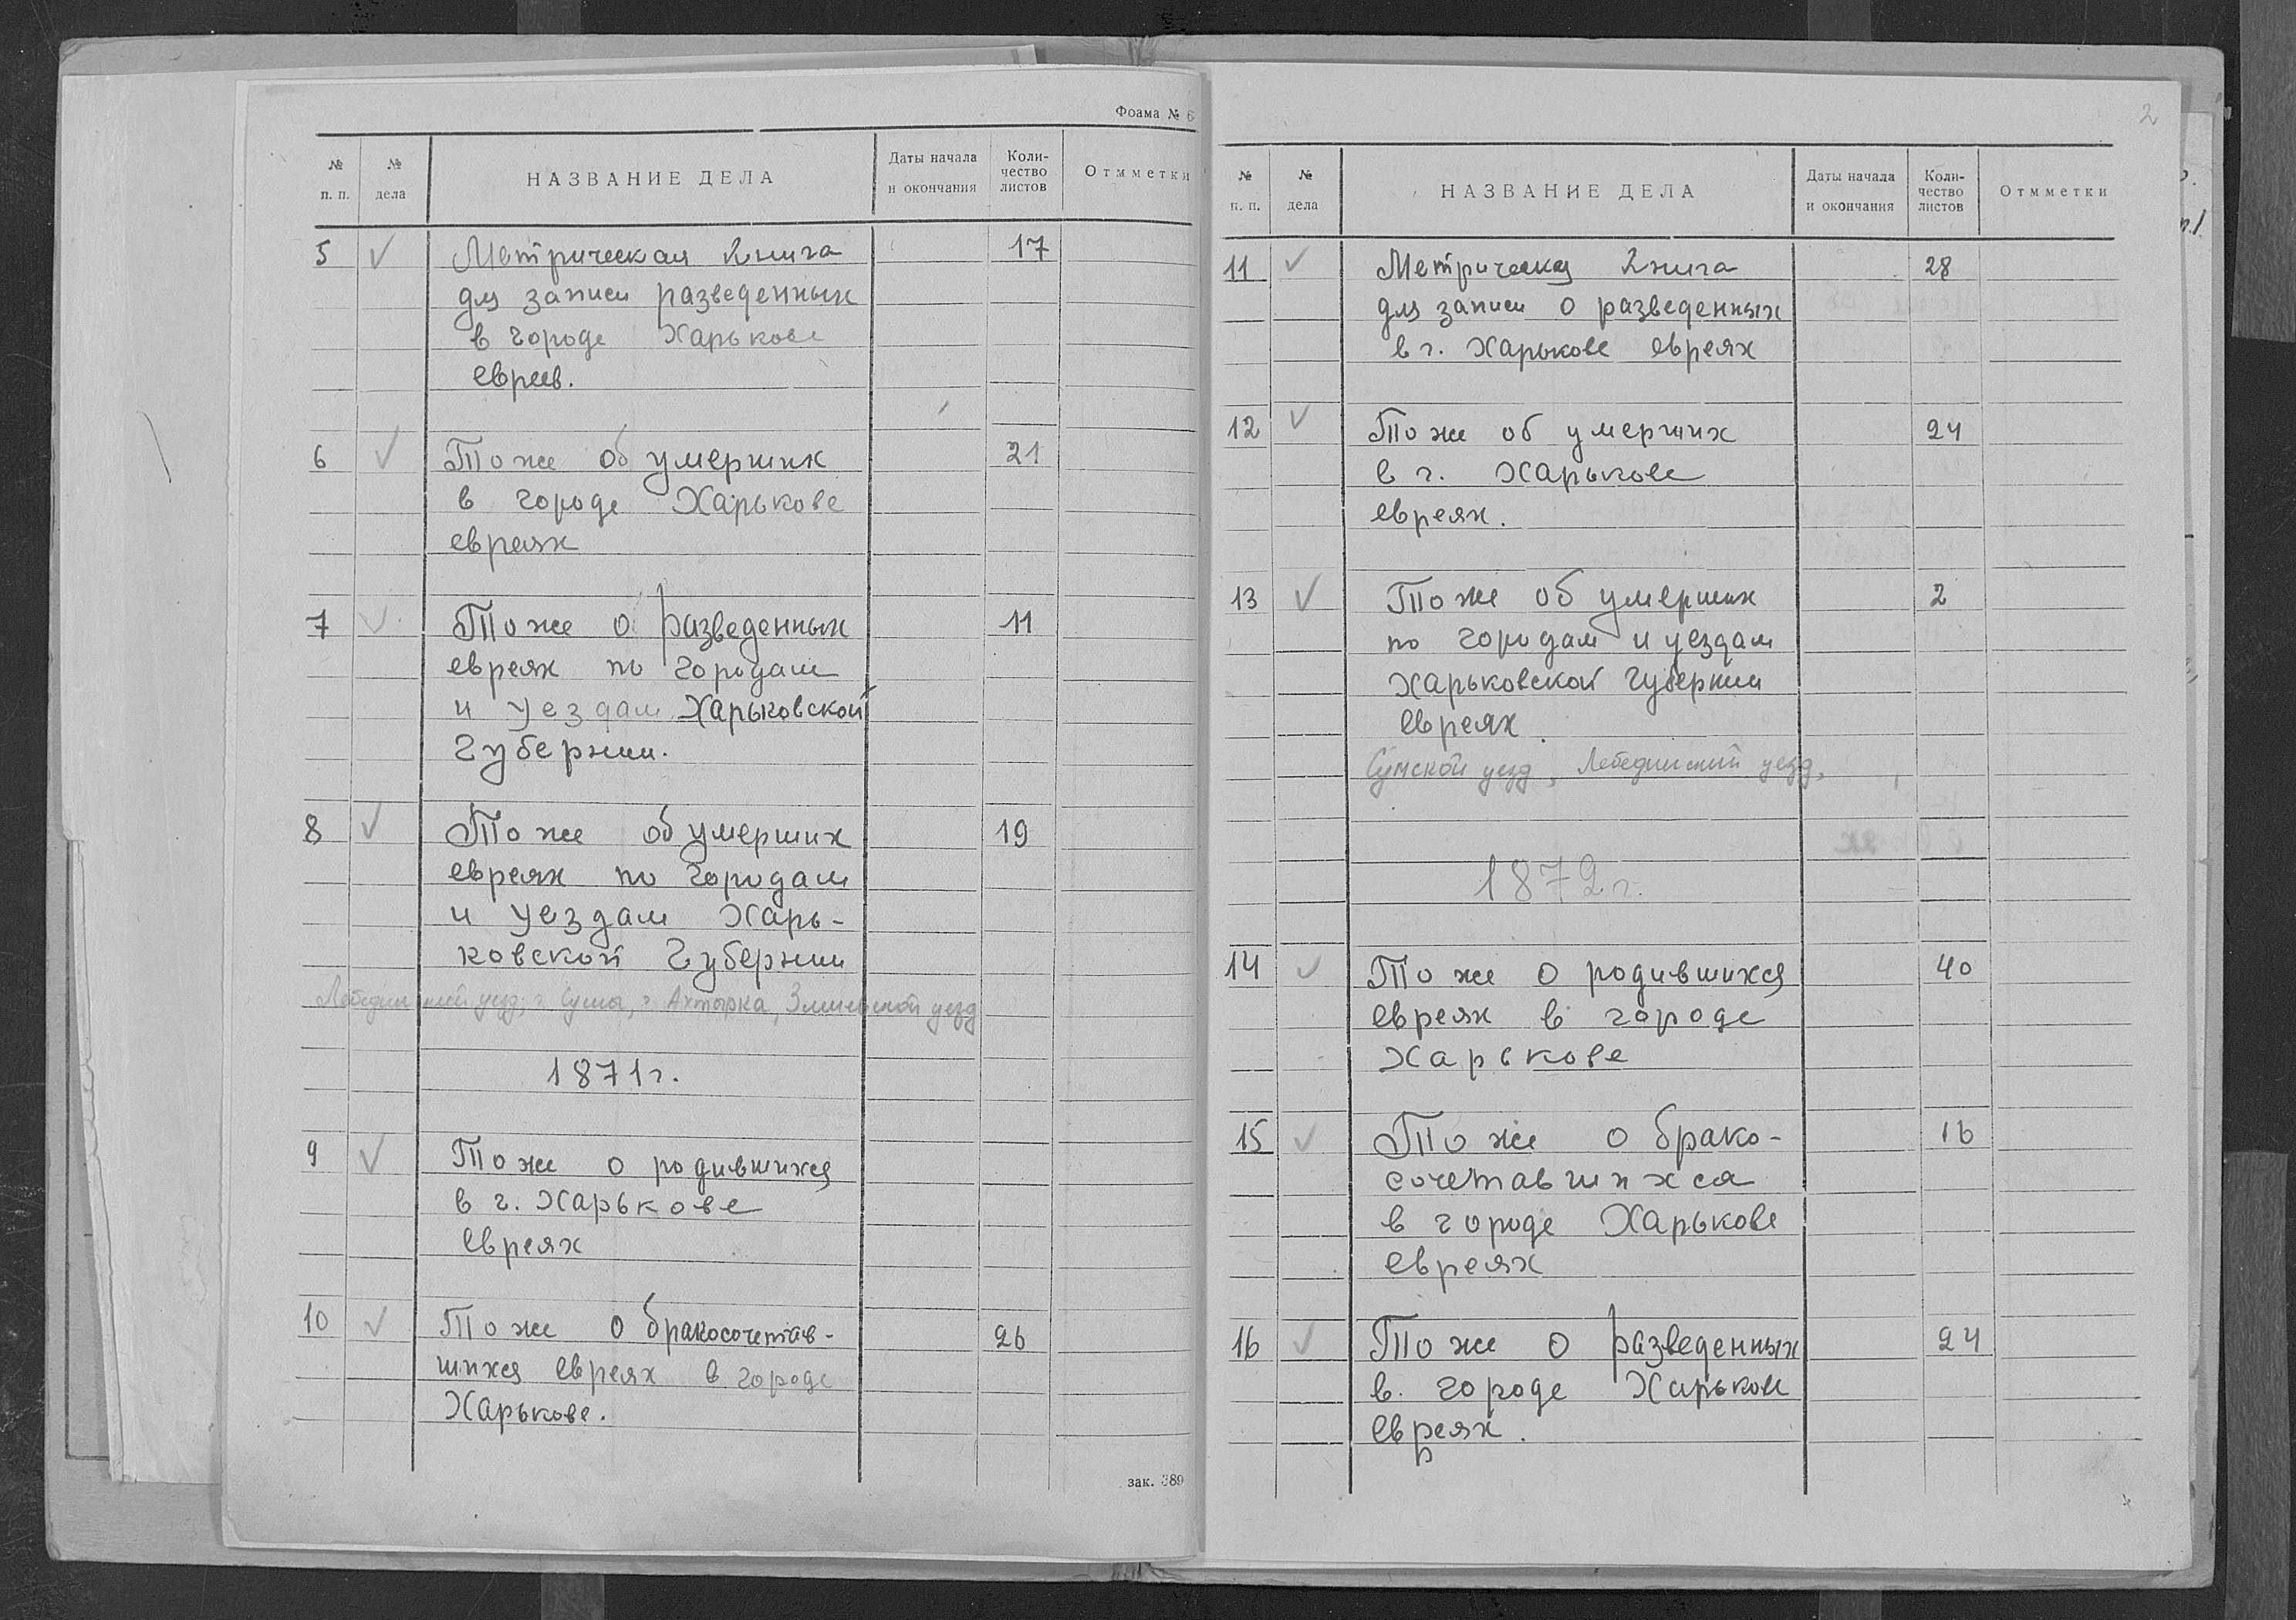 Фоама № 6
№ п. п.
№ дела
НАЗВАНИЕ ДЕЛА
Даты начала и окончания
Коли-чество листов
Отмметки
5 ✓ Метрическая Книга 17
для записи разведенных
в городе Харькове
евреев.
6 ✓ То же об умерших 21
в городе Харькове
евреях
7 ✓ То же о разведенных 11
евреях по городам
и уездам Харьковской
Губернии.
8 ✓ То же об умерших 19
евреях по городам
и уездам Харь-
ковской Губернии
Лебединский уезд, г. Сумы, г. Ахтырка, Змиевской уезд
1871 г.
9 ✓ То же о родившихся
в г. Харькове
евреях
10 ✓ То же о бракосочетав- 26
шихся евреях в городе
Харькове.
зак. 389
2
№ п. п.
№ дела
НАЗВАНИЕ ДЕЛА
Даты начала и окончания
Коли-чество листов
Отмметки
11 ✓ Метрическая Книга 28
для записи о разведенных
в г. Харькове евреях
12 ✓ То же об умерших 24
в г. Харькове
евреях.
13 ✓ То же об умерших 2
по городам и уездам
Харьковской Губернии
евреях.
Сумской уезд, Лебединский уезд,
1872 г.
14 ✓ То же о родившихся 40
евреях в городе
Харькове
15 ✓ То же о брако- 16
сочетавшихся
в городе Харькове
евреях
16 ✓ То же о разведенных 24
в городе Харькове
евреях.